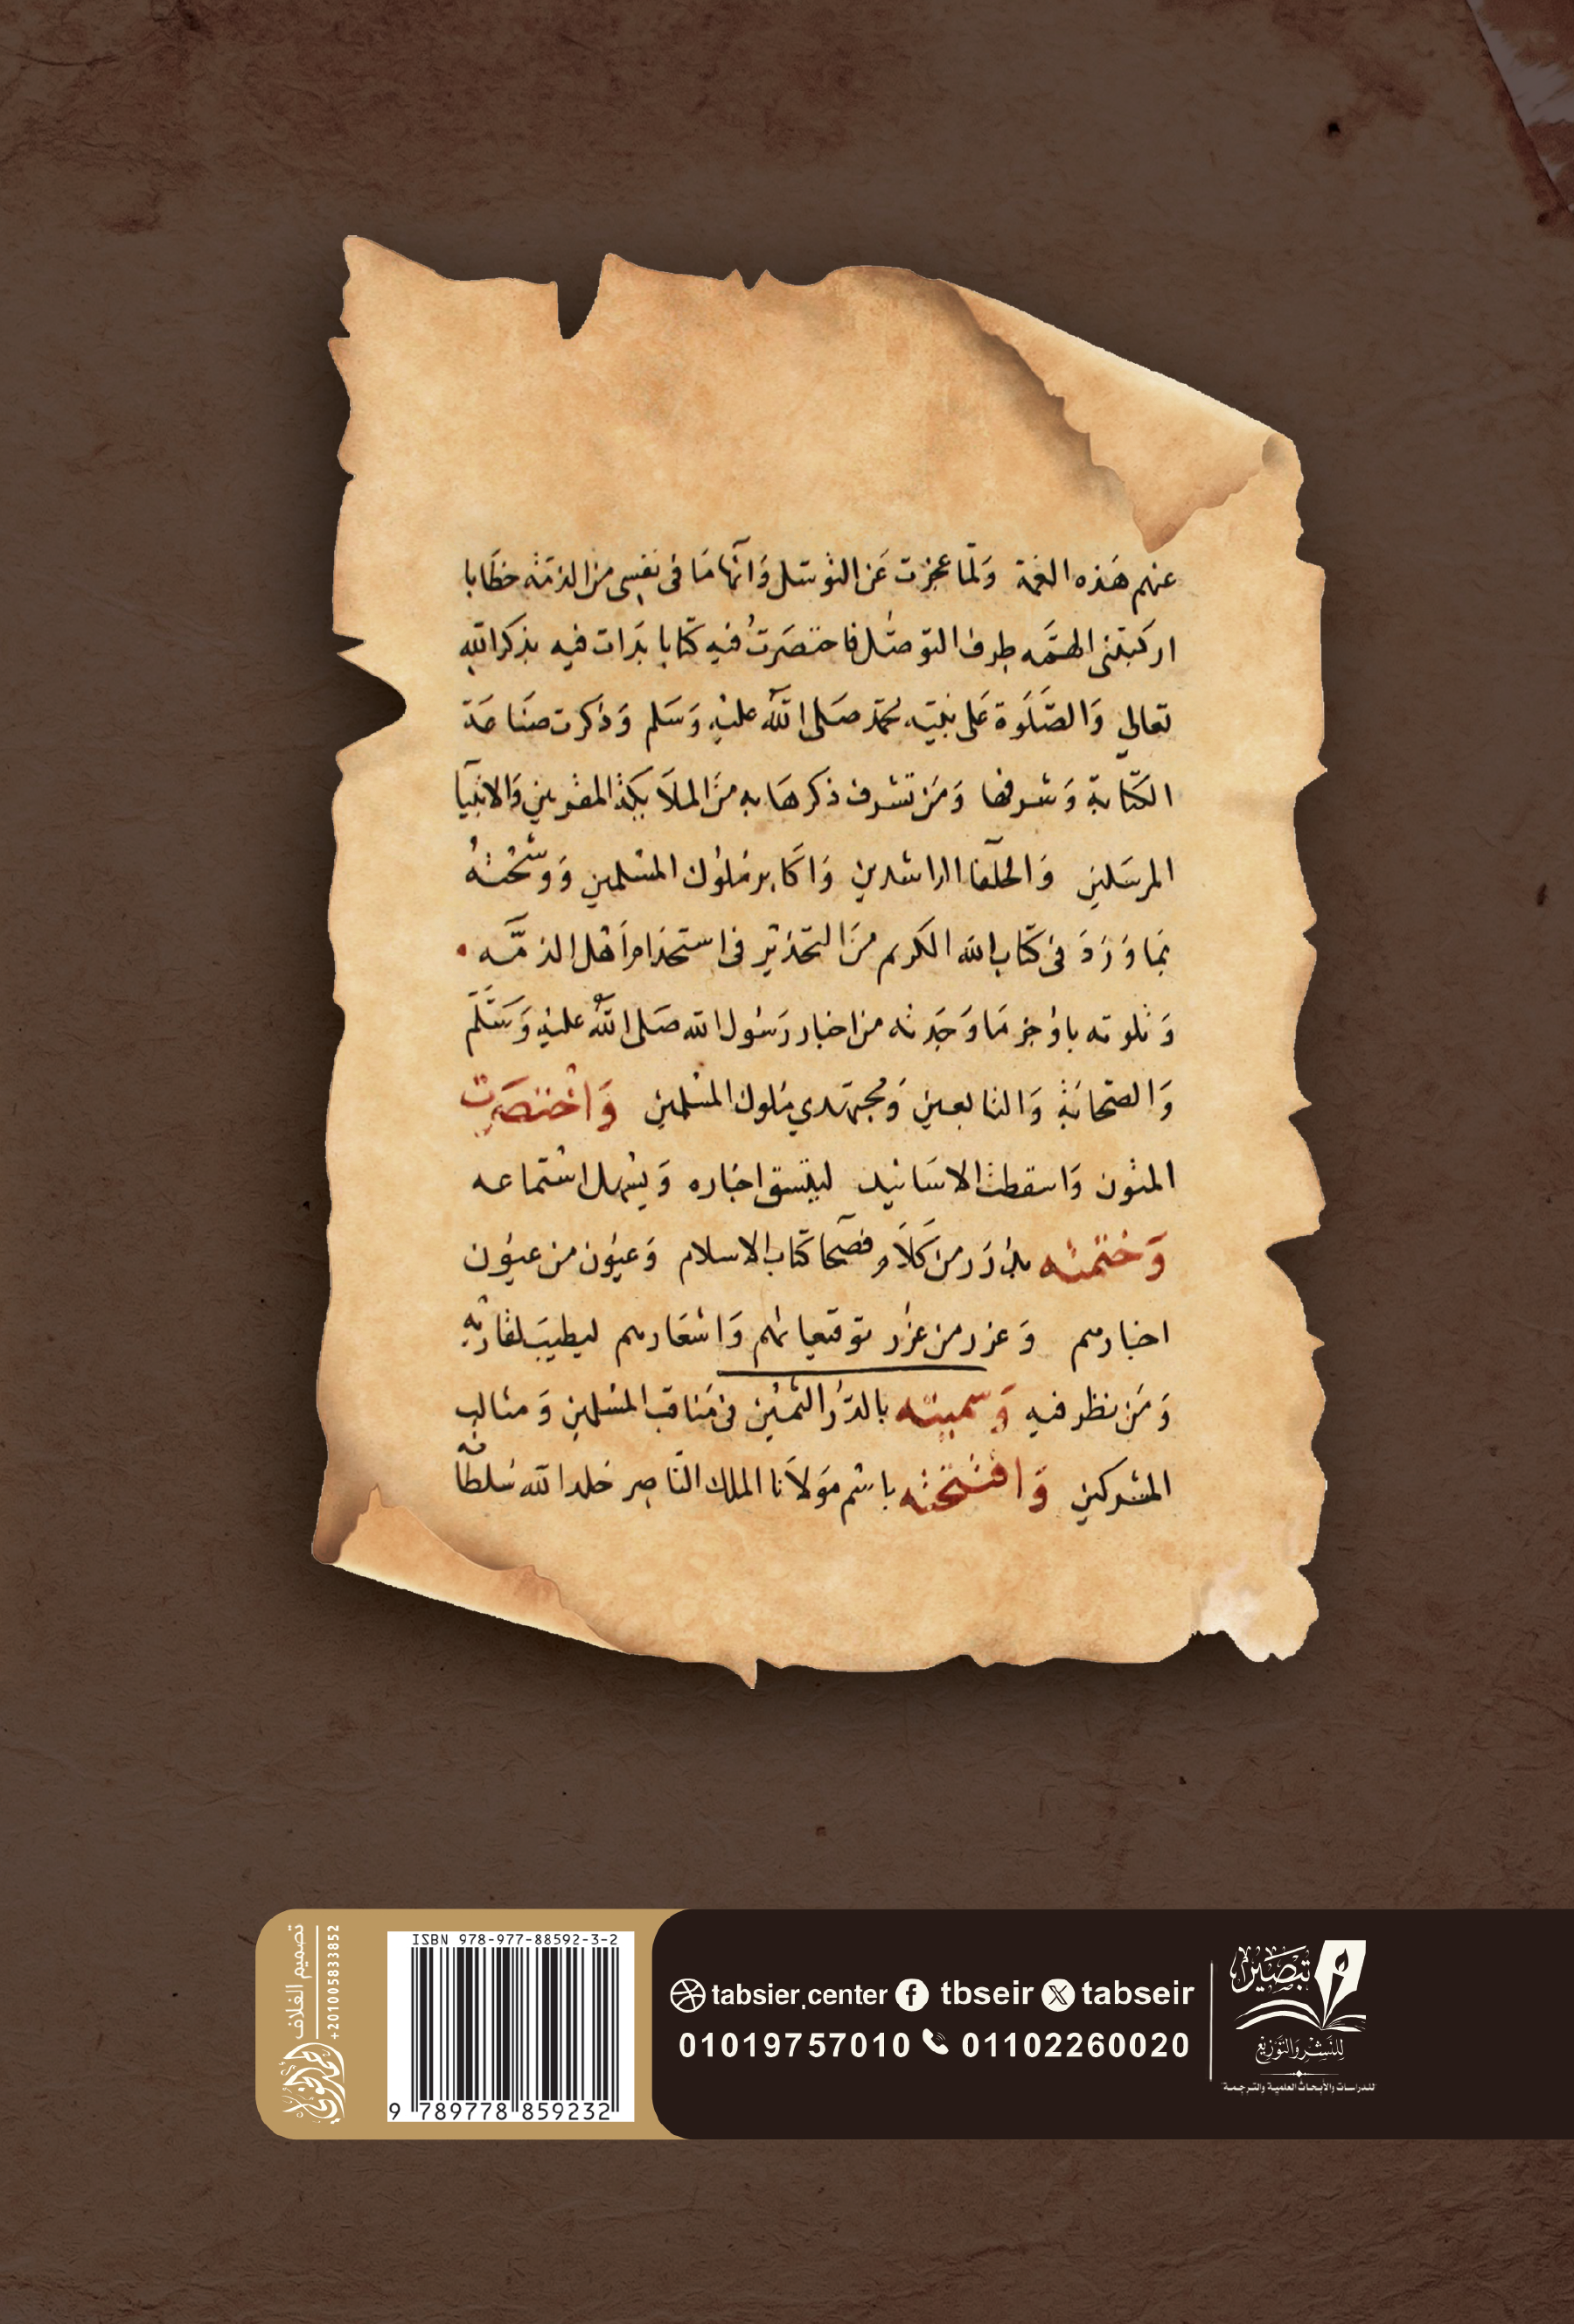 عنهم هذه الغمة ولما عجزت عن التوسل وانها ما في نفسي من الذمة خطابا
اركبتني الهمة طرف التوصل فاختصرت فيه كتابا بدات فيه بذكر الله
تعالى والصلوة على نبيه محمد صلى الله عليه وسلم وذكرت صناعة
الكتابة وشرفها ومن تشرف ذكرها به من الملائكة المقربين والانبيآ
المرسلين والخلفا الراشدين واكابر ملوك المسلمين ووشحته
بما ورد في كتاب الله الكريم من التحذير في استخدام اهل الذمة
وتلوته باوجز ما وجدته من اخبار رسول الله صلى الله عليه وسلم
والصحابة والتابعين ومجتهدي ملوك المسلمين واختصرت
المتون واسقطت الاسانيد ليتسق اخباره ويسهل استماعه
وختمته بدرر من كلام فصحا كتاب الاسلام وعيون من عيون
اخبارهم وغرر من غرر توقيعاتهم واشعارهم ليطيب لقاريه
ومن نظر فيه وسميته بالدر الثمين في مناقب المسلمين ومثالب
المشركين وافتتحته باسم مولانا الملك الناصر خلد الله سلطا
تصميم الغلاف
+201005833852
ISBN 978-977-88592-3-2
9 789778 859232
tabsier.center tbseir tabseir
01019757010 01102260020
تبصير
للنشر والتوزيع
للدراسات والأبحاث العلمية والترجمة